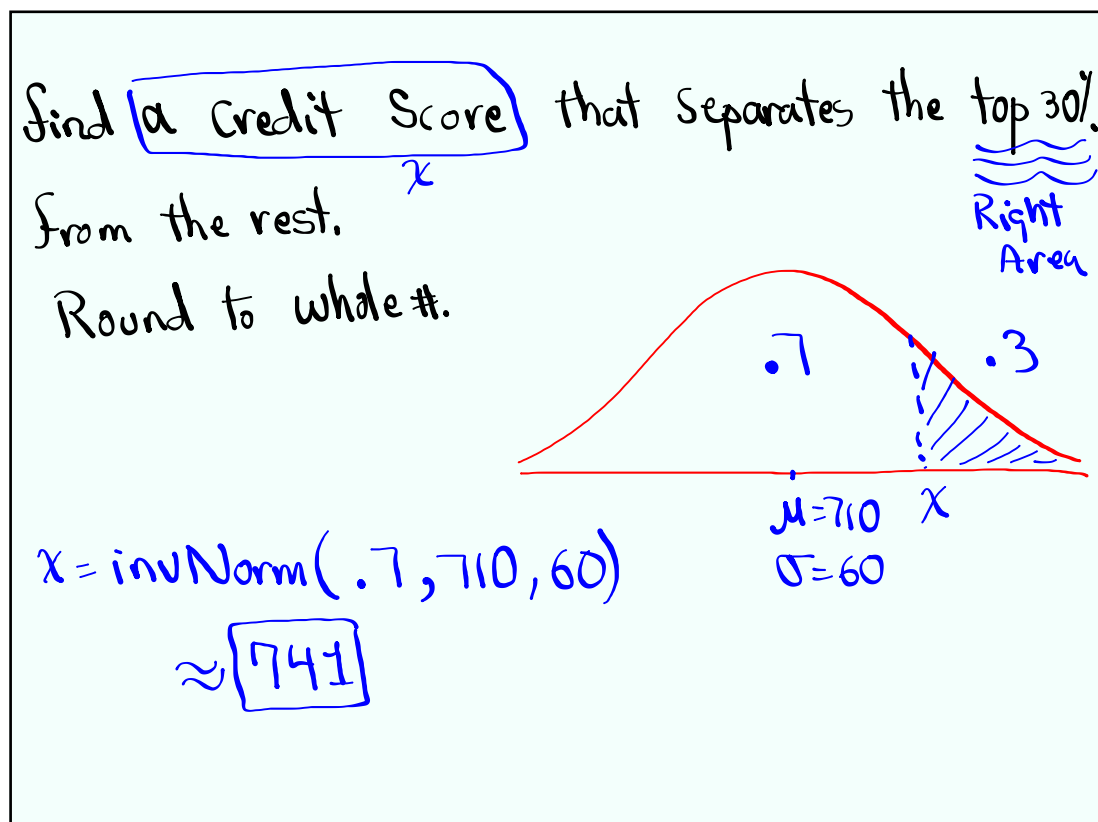 find a Credit Score that separates the top 30%
x
from the rest.
Right
Area
Round to whole #.
.7
.3
μ=710
x
σ=60
x = invNorm(.7, 710, 60)
≈ 741